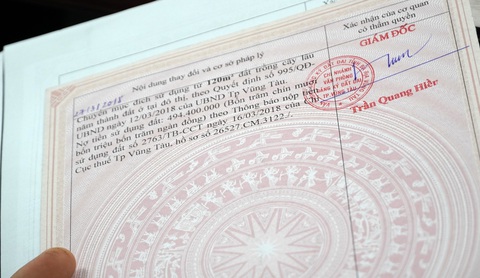 Nội dung thay đổi và cơ sở pháp lý
Xác nhận của cơ quan
có thẩm quyền
Chuyển mục đích sử dụng từ 120m² đất trồng cây lâu
năm thành đất ở tại đô thị, theo Quyết định số 995/QĐ-
UBND ngày 12/03/2018 của UBND TP Vũng Tàu.
Nợ tiền sử dụng đất: 494.400.000 (Bốn trăm chín mươi
bốn triệu bốn trăm ngàn đồng) theo Thông báo nộp tiền
sử dụng đất số 2763/TB-CCT ngày 16/03/2018 của Chi
Cục thuế Tp Vũng Tàu, hồ sơ số 26527.CM.3122./.
GIÁM ĐỐC
CHI NHÁNH
VĂN PHÒNG
ĐĂNG KÝ ĐẤT ĐAI
Trần Quang Hiền